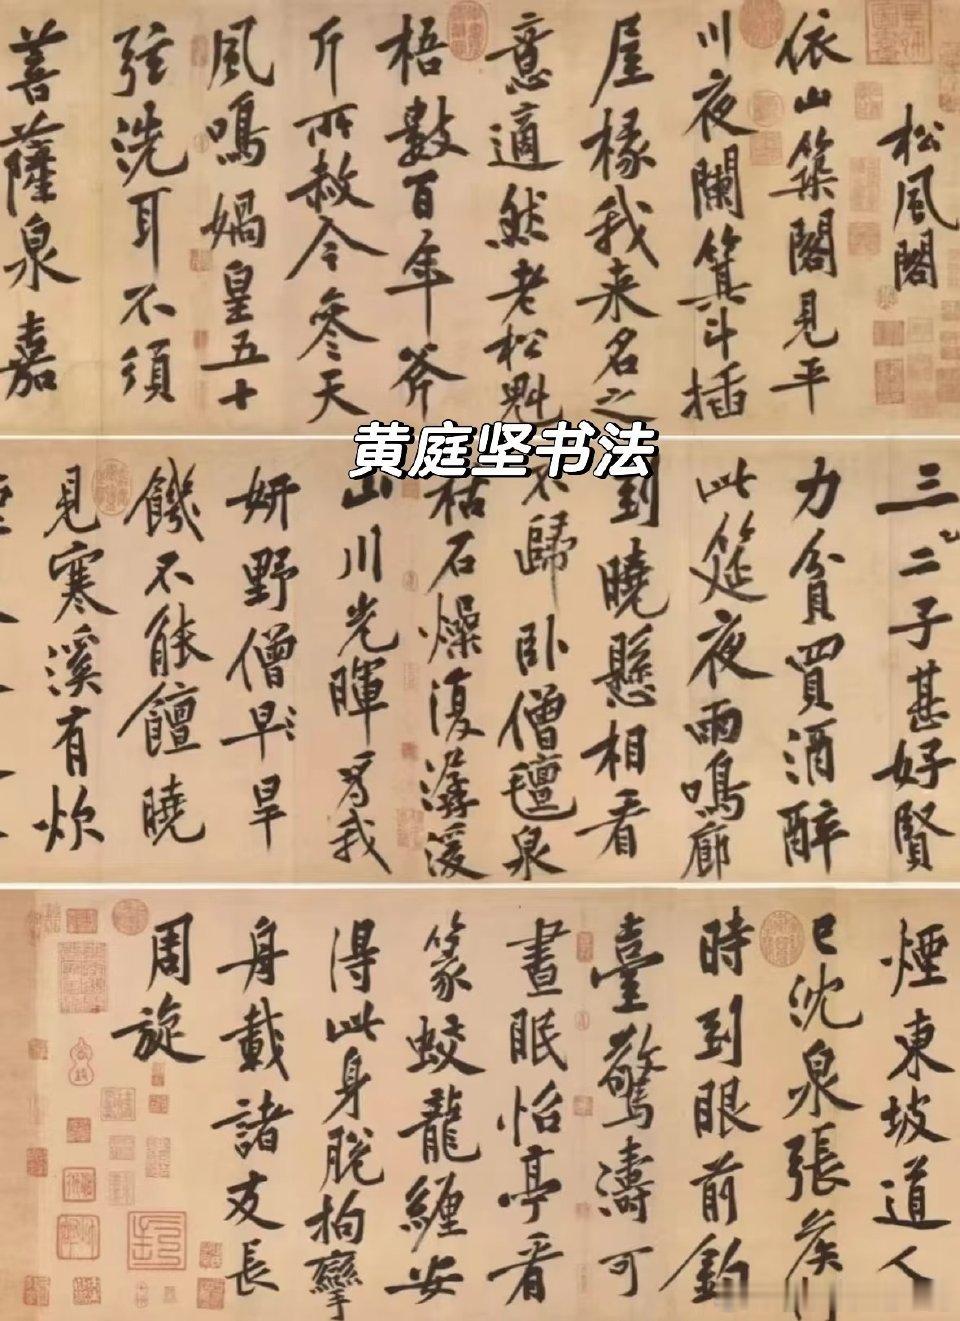 黄庭坚书法
松風閣
依山築閣見平
川夜闌箕斗插
屋椽我来名之
意適然老松魁
梧數百年斧
斤所赦今參天
風鳴媧皇五十
弦洗耳不須
菩薩泉嘉
三二子甚好賢
力貧買酒醉
此筵夜雨鳴廊
到曉懸相看
不歸卧僧氊泉
枯石燥復潺湲
山川光暉為我
妍野僧早旱
饑不能饘曉
見寒溪有炊
煙東坡道人
已沈泉張侯何
時到眼前釣
臺驚濤可
晝眠怡亭看
篆蛟龍纏安
得此身脱拘攣
舟載諸友長
周旋